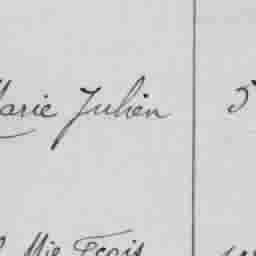 Marie Julien 5
Mie Fçois